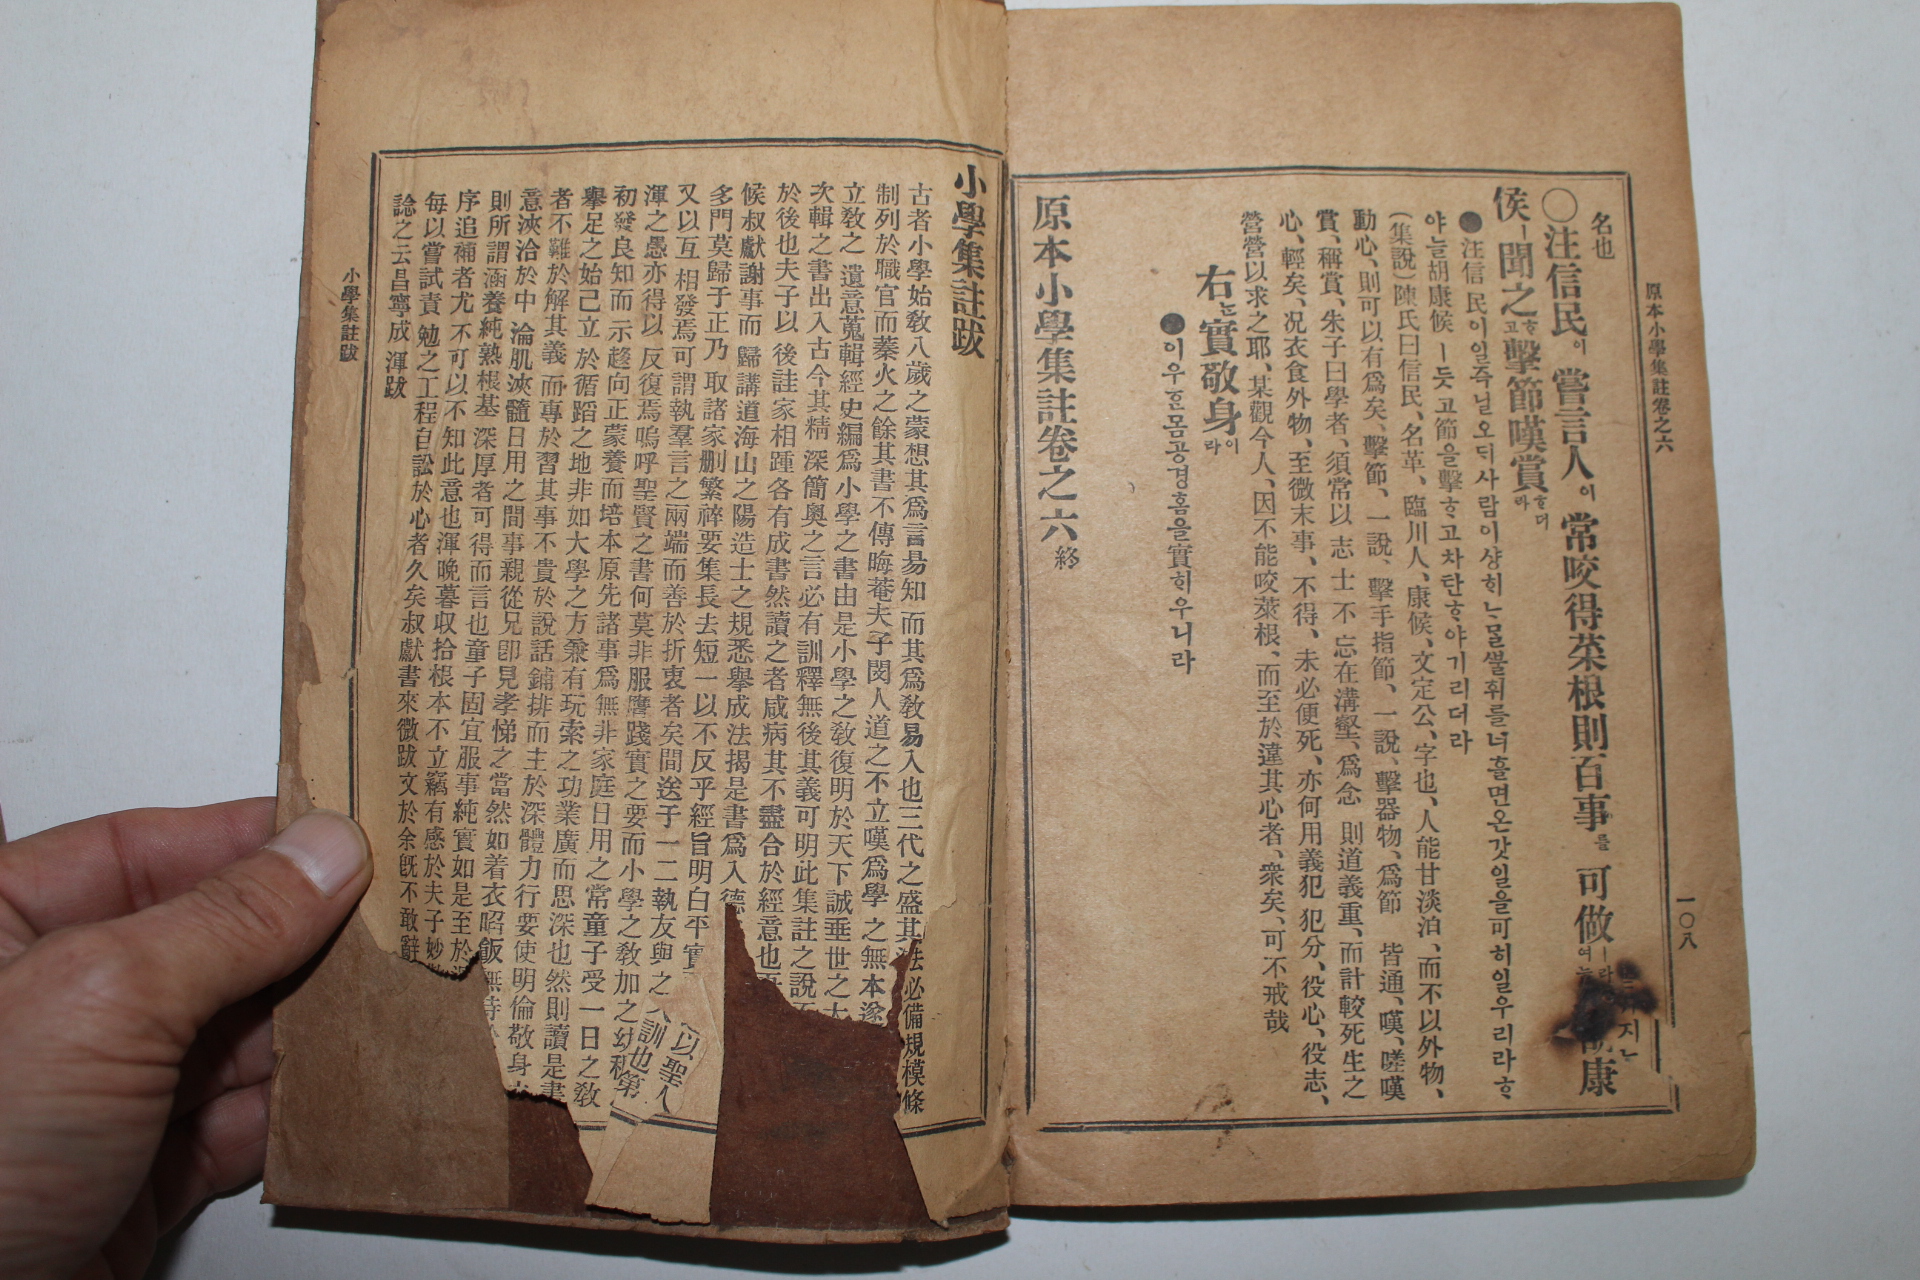 原本小學集註卷之六
一〇八
名也
〇汪信民이 嘗言人이 常咬得菜根則百事를 可做
康
侯ㅣ聞之고 擊節嘆賞라
●汪信民이일즉닐오디사람이샹히
야늘胡康候ㅣ듯고節을擊고차탄야기리더라
(集說)陳氏曰信民、名革、臨川人、康候、文定公、字也、人能甘淡泊、而不以外物、
動心、則可以有爲矣、擊節、一說、擊手指節、一說、擊器物、爲節 皆通、嘆、嗟嘆
賞、稱賞、朱子曰學者、須常以志士不忘在溝壑、爲念 則道義重、而計較死生之
心、輕矣、况衣食外物、至微末事、不得、未必便死、亦何用義犯 犯分、役心、役志、
營營以求之耶、某觀今人、因不能咬菜根、而至於違其心者、衆矣、可不戒哉
右 實敬身이라
●이우 몸공경홈을實히우니라
原本小學集註卷之六 終
小學集註跋
古者小學始敎八歲之蒙想其爲言易知而其爲敎易入也三代之盛其法必備規模條
制列於職官而蓁火之餘其書不傳晦菴夫子閔人道之不立嘆爲學之無本遂
立敎之遺意蒐輯經史編爲小學之書由是小學之敎復明於天下誠垂世之大
次輯之書出入古今其精深簡奧之言必有訓釋無後其義可明此集註之說
於後也夫子以後註家相踵各有成書然讀之者咸病其不盡合於經意也
候叔獻謝事而歸講道海山之陽造士之規悉擧成法揭是書爲入德
多門莫歸于正乃取諸家刪繁稡要集長去短一以不反乎經旨明白平實
又以互相發焉可謂執羣言之兩端而善於折衷者矣間送子一二執友與之 以聖人
渾之愚亦得以反復焉嗚呼聖賢之書何莫非服膺踐實之要而小學之敎加之幼穉
訓也第
初發良知而示趍向正蒙養而培本原先諸事爲無非家庭日用之常童子受一日之敎
擧足之始已立於循蹈之地非如大學之方兼有玩索之功業廣而思深也然則讀是書
者不難於解其義而專於習其事不貴於說話鋪排而主於深體力行要使明倫敬身
意浹洽於中淪肌浹髓日用之間事親從兄卽見孝悌之當然如着衣喫飯無待
則所謂涵養純熟根基深厚者可得而言也童子固宜服事純實如是至於
序追補者尤不可以不知此意也渾晩暮収拾根本不立竊有感於夫子妙
每以嘗試責勉之工程自訟於心者久矣叔獻書來徵跋文於余旣不敢辭
諗之云昌寧成渾跋
小學集註跋